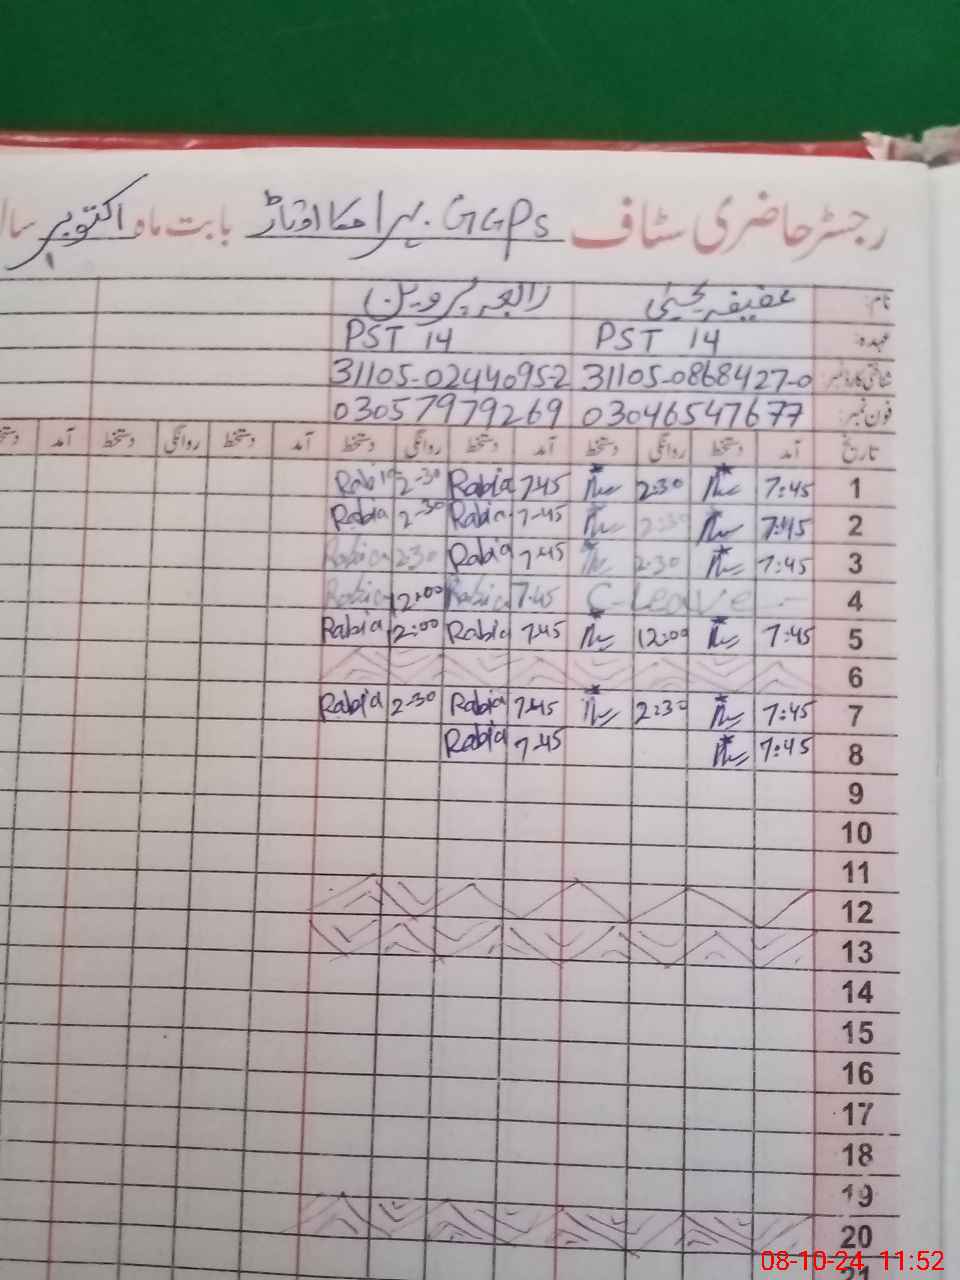 رجسٹر حاضری سٹاف GGPS بابت ماہ اکتوبر سال
نام: عفیفہ یحییٰ رابعہ پروین
عہدہ: PST 14 PST 14
شناختی کارڈ نمبر: 31105-0868427-0 31105-0244095-2
فون نمبر: 03046547677 03057979269
تاریخ آمد دستخط روانگی دستخط آمد دستخط روانگی دستخط آمد دستخط روانگی دستخط آمد دستخط
1 7:45 2:30 7:45 Rabia 2-30 Rabia
2 7:45 2:30 7-45 Rabia 2-30 Rabia
3 7:45 2:30 7-45 Rabia 2:30 Rabia
4 C-Leave 7:45 Rabia 12:00 Rabia
5 7:45 12:00 7:45 Rabia 12:00 Rabia
6
7 7:45 2:30 7:45 Rabia 2-30 Rabia
8 7:45 7-45 Rabia
9
10
11
12
13
14
15
16
17
18
19
20
21
08-10-24 11:52